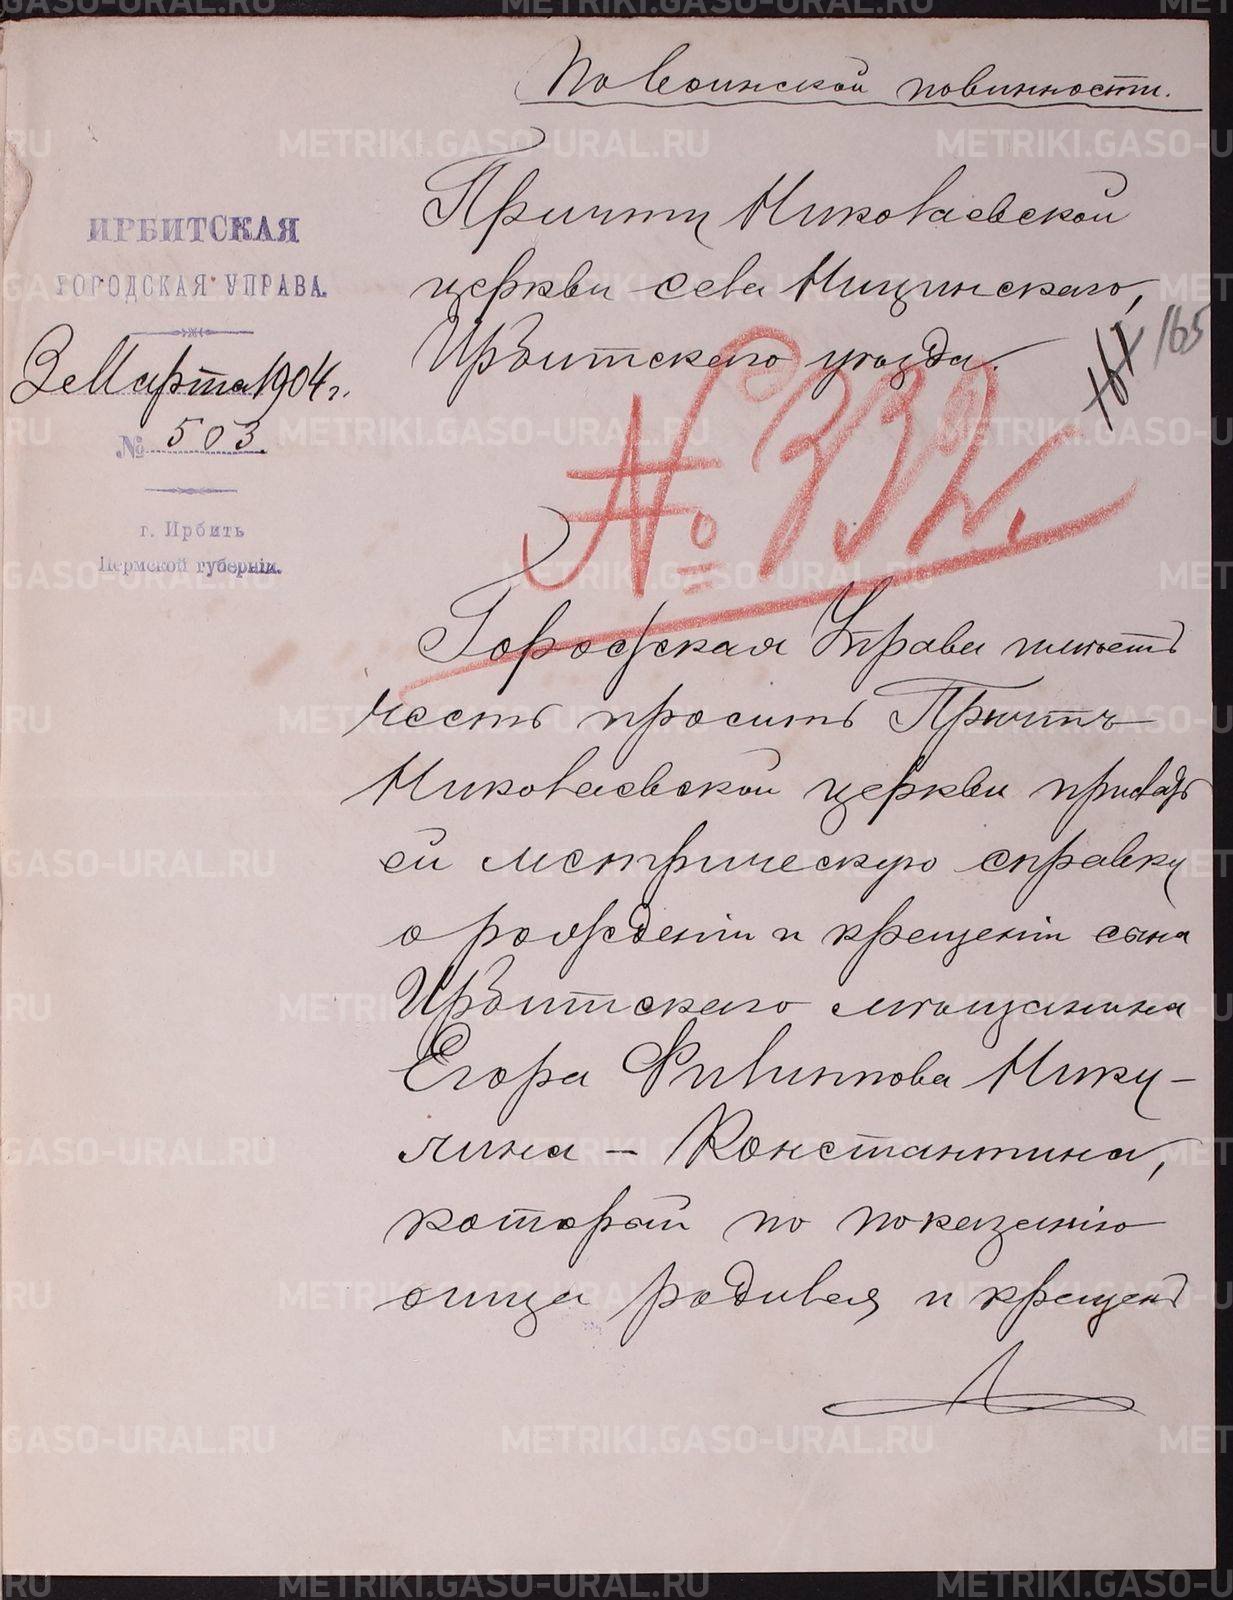 По воинской повинности.
ИРБИТСКАЯ
ГОРОДСКАЯ УПРАВА.
3 Марта 1904 г.
№ 503
г. Ирбитъ
Пермской губерніи.
Причту Николаевской
церкви села Ницинскаго,
Ирбитскаго уѣзда.
165
№ 332.
Городская Управа имѣетъ
честь просить Причтъ
Николаевской церкви прислать
ей метрическую справку
о рожденіи и крещеніи сына
Ирбитскаго мѣщанина
Егора Филиппова Нику-
лина - Константина,
который по показанію
отца родился и крещенъ
METRIKI.GASO-URAL.RU